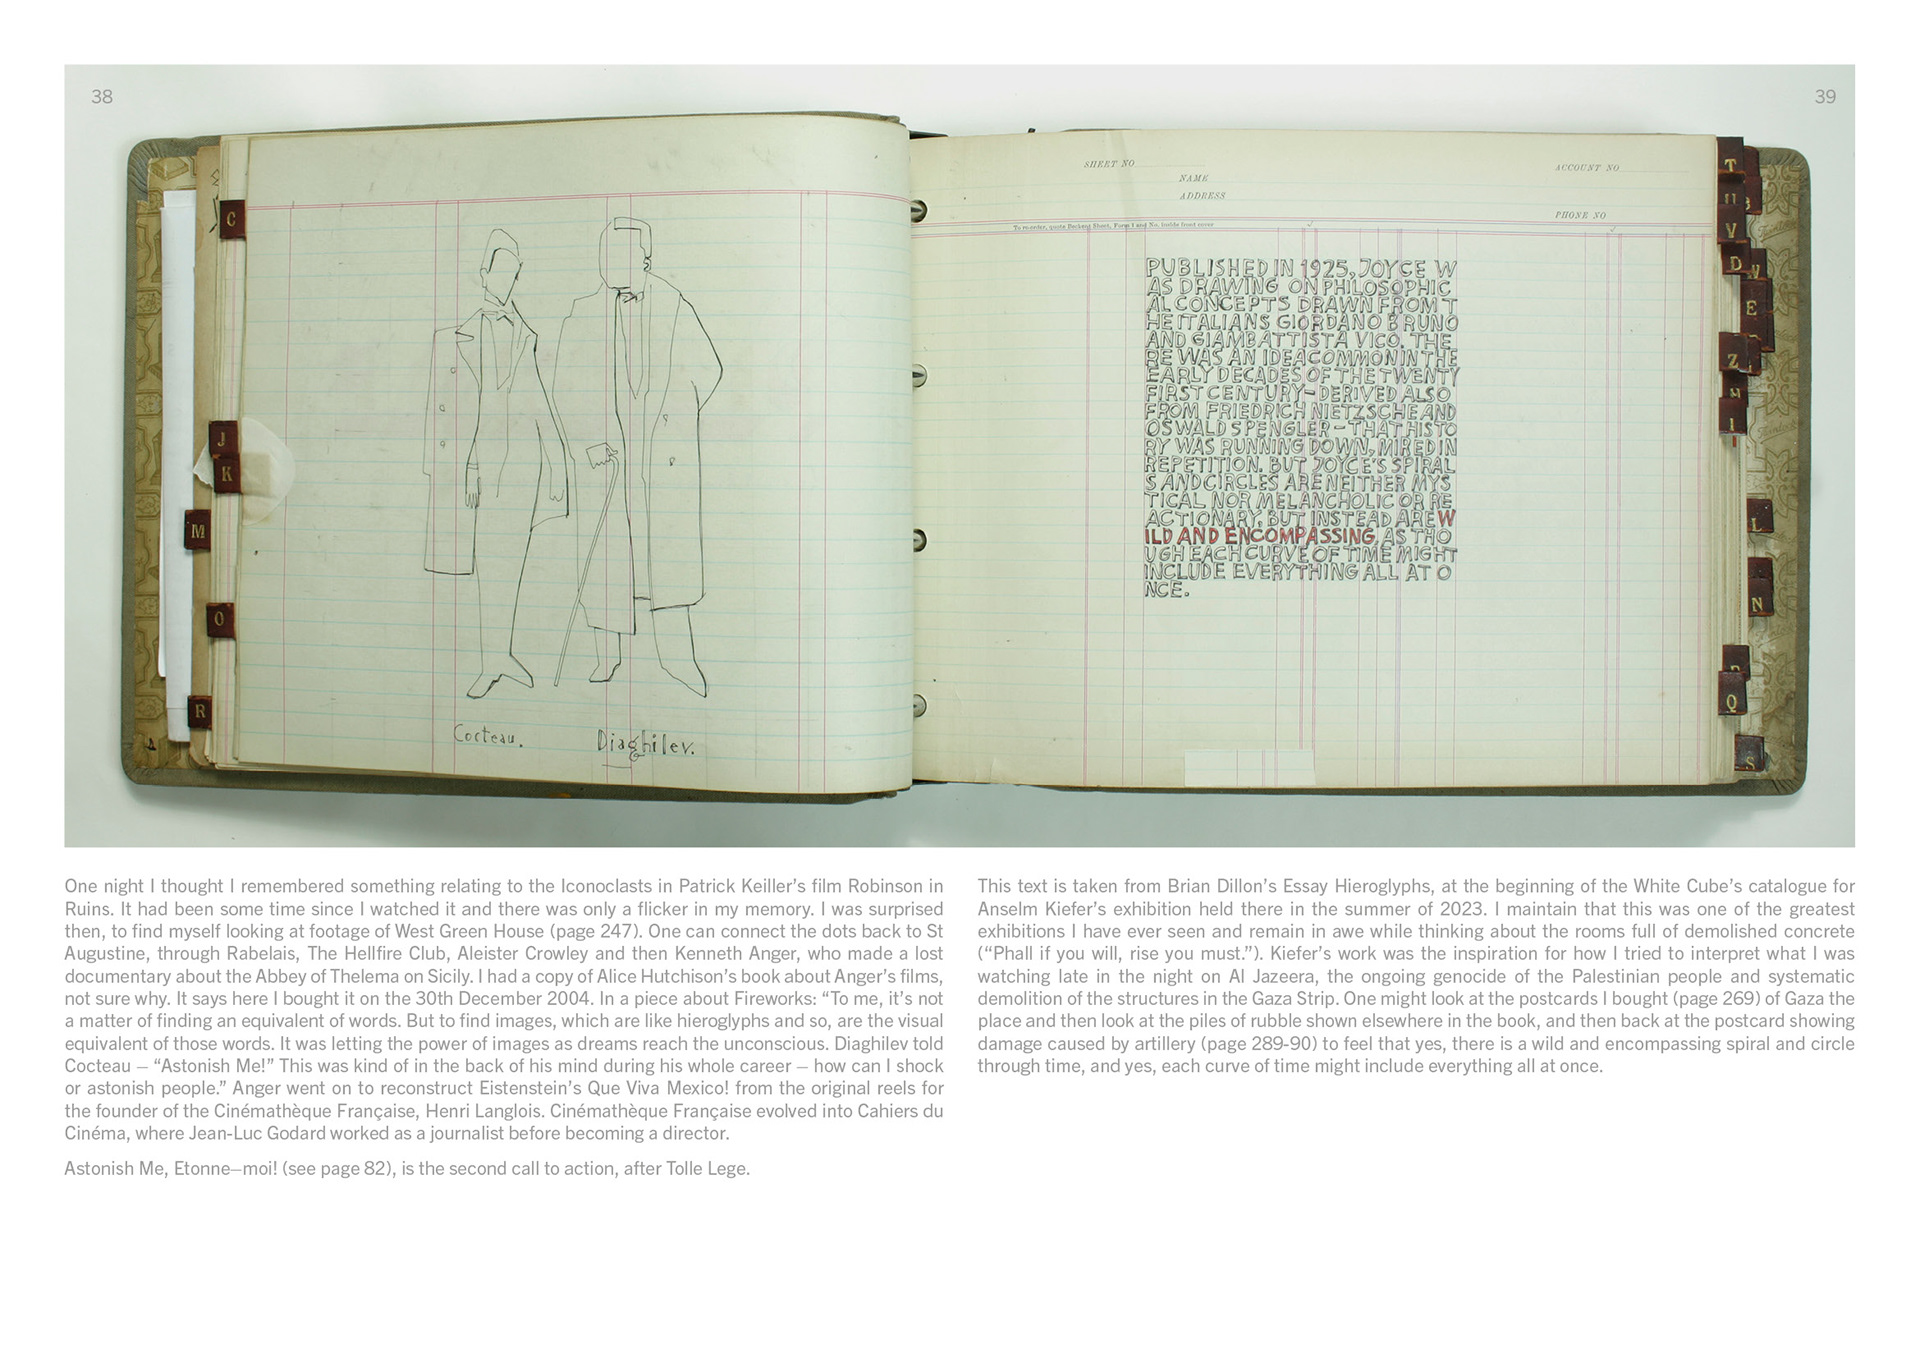 38
39
C
J
K
M
O
R
Cocteau.
Diaghilev.
SHEET NO
ACCOUNT NO
NAME
ADDRESS
PHONE NO
To re-order, quote Beckent Sheet, Form 1 and No. inside front cover
PUBLISHED IN 1925, JOYCE W
AS DRAWING ON PHILOSOPHIC
AL CONCEPTS DRAWN FROM T
HE ITALIANS GIORDANO BRUNO
AND GIAMBATTISTA VICO. THE
RE WAS AN IDEA COMMON IN THE
EARLY DECADES OF THE TWENTY
FIRST CENTURY – DERIVED ALSO
FROM FRIEDRICH NIETZSCHE AND
OSWALD SPENGLER – THAT HISTO
RY WAS RUNNING DOWN, MIRED IN
REPETITION. BUT JOYCE'S SPIRAL
S AND CIRCLES ARE NEITHER MYS
TICAL NOR MELANCHOLIC OR RE
ACTIONARY, BUT INSTEAD ARE W
ILD AND ENCOMPASSING, AS THO
UGH EACH CURVE OF TIME MIGHT
INCLUDE EVERYTHING ALL AT O
NCE.
T
U
V
D
W
E
Z
H
I
L
N
P
Q
S
One night I thought I remembered something relating to the Iconoclasts in Patrick Keiller's film Robinson in
Ruins. It had been some time since I watched it and there was only a flicker in my memory. I was surprised
then, to find myself looking at footage of West Green House (page 247). One can connect the dots back to St
Augustine, through Rabelais, The Hellfire Club, Aleister Crowley and then Kenneth Anger, who made a lost
documentary about the Abbey of Thelema on Sicily. I had a copy of Alice Hutchison's book about Anger's films,
not sure why. It says here I bought it on the 30th December 2004. In a piece about Fireworks: “To me, it's not
a matter of finding an equivalent of words. But to find images, which are like hieroglyphs and so, are the visual
equivalent of those words. It was letting the power of images as dreams reach the unconscious. Diaghilev told
Cocteau – “Astonish Me!” This was kind of in the back of his mind during his whole career – how can I shock
or astonish people.” Anger went on to reconstruct Eistenstein's Que Viva Mexico! from the original reels for
the founder of the Cinémathèque Française, Henri Langlois. Cinémathèque Française evolved into Cahiers du
Cinéma, where Jean-Luc Godard worked as a journalist before becoming a director.
Astonish Me, Etonne–moi! (see page 82), is the second call to action, after Tolle Lege.
This text is taken from Brian Dillon's Essay Hieroglyphs, at the beginning of the White Cube's catalogue for
Anselm Kiefer's exhibition held there in the summer of 2023. I maintain that this was one of the greatest
exhibitions I have ever seen and remain in awe while thinking about the rooms full of demolished concrete
(“Phall if you will, rise you must.”). Kiefer's work was the inspiration for how I tried to interpret what I was
watching late in the night on Al Jazeera, the ongoing genocide of the Palestinian people and systematic
demolition of the structures in the Gaza Strip. One might look at the postcards I bought (page 269) of Gaza the
place and then look at the piles of rubble shown elsewhere in the book, and then back at the postcard showing
damage caused by artillery (page 289-90) to feel that yes, there is a wild and encompassing spiral and circle
through time, and yes, each curve of time might include everything all at once.